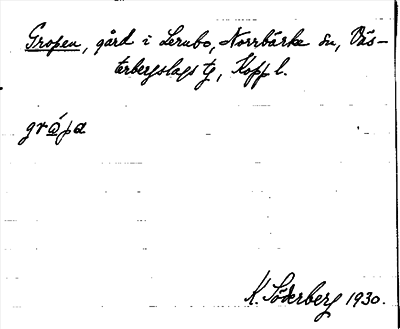 Gropen, gård i Lernbo, Norrbärke sn, Väs-
terbergslags tg, Kopp l.
gröpa
K. Söderberg 1930.